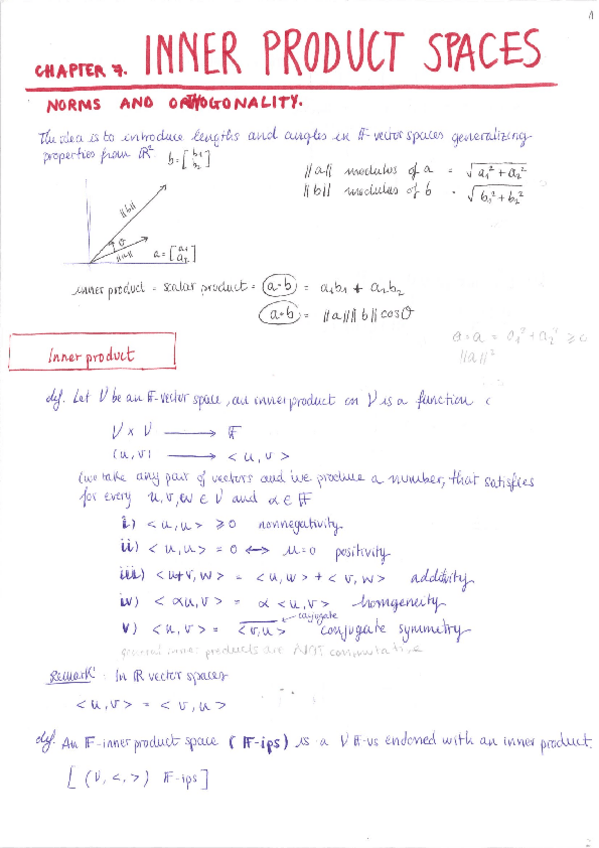 1
CHAPTER 7. INNER PRODUCT SPACES
NORMS AND ORTHOGONALITY.
The idea is to introduce lengths and angles in 𝔽-vector spaces generalizing
properties from ℝ². b = [b₁ b₂]
||a|| modulus of a = √(a₁² + a₂²)
||b|| modulus of b = √(b₁² + b₂²)
||b||
θ
||a||
a = [a₁ a₂]
inner product = scalar product = a·b = a₁b₁ + a₂b₂
a·b = ||a|| ||b|| cosθ
a·a = a₁² + a₂² ≥ 0
||a||²
Inner product
def. Let V be an 𝔽-vector space, an inner product on V is a function :
V × V → 𝔽
(u,v) → <u,v>
(we take any pair of vectors and we produce a number, that satisfies
for every u,v,w ∈ V and α ∈ 𝔽
i) <u,u> ≥ 0 nonnegativity
ii) <u,u> = 0 ↔ u=0 positivity
iii) <u+v,w> = <u,w> + <v,w> additivity
iv) <αu,v> = α<u,v> homgeneity
conjugate
v) <u,v> = <v,u>‾ conjugate symmetry
general inner products are NOT commutative
Remark: In ℝ vector spaces
<u,v> = <v,u>
def. An 𝔽-inner product space (𝔽-ips) is a V 𝔽-vs endoned with an inner product.
[ (V, <,>) 𝔽-ips ]
2